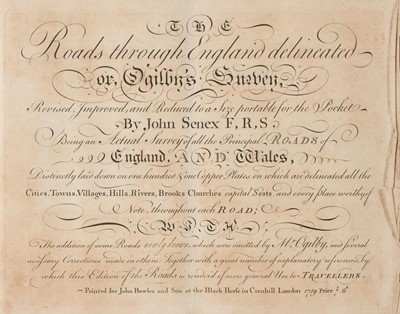 THE
Roads through England delineated
or, Ogilby's Survey,
Revised, Improved, and Reduced to a Size portable for the Pocket
By John Senex F.R.S.
Being an Actual Survey of all the Principal ROADS of
England, AND Wales,
Distinctly laid down on one hundred & one Copper Plates on which are delineated all the
Cities, Towns, Villages, Hills, Rivers, Brooks Churches capital Seats and every place worthy of
Note, throughout each ROAD;
WITH
The addition of some Roads newly drawn, which were omitted by Mr. Ogilby, and several
necessary Corrections made in others. Together with a great number of explanatory references by
which this Edition of the Roads is render'd of more general Use to TRAVELLERS.
Printed for John Bowles and Son at the Black Horse in Cornhill London 1759 Price